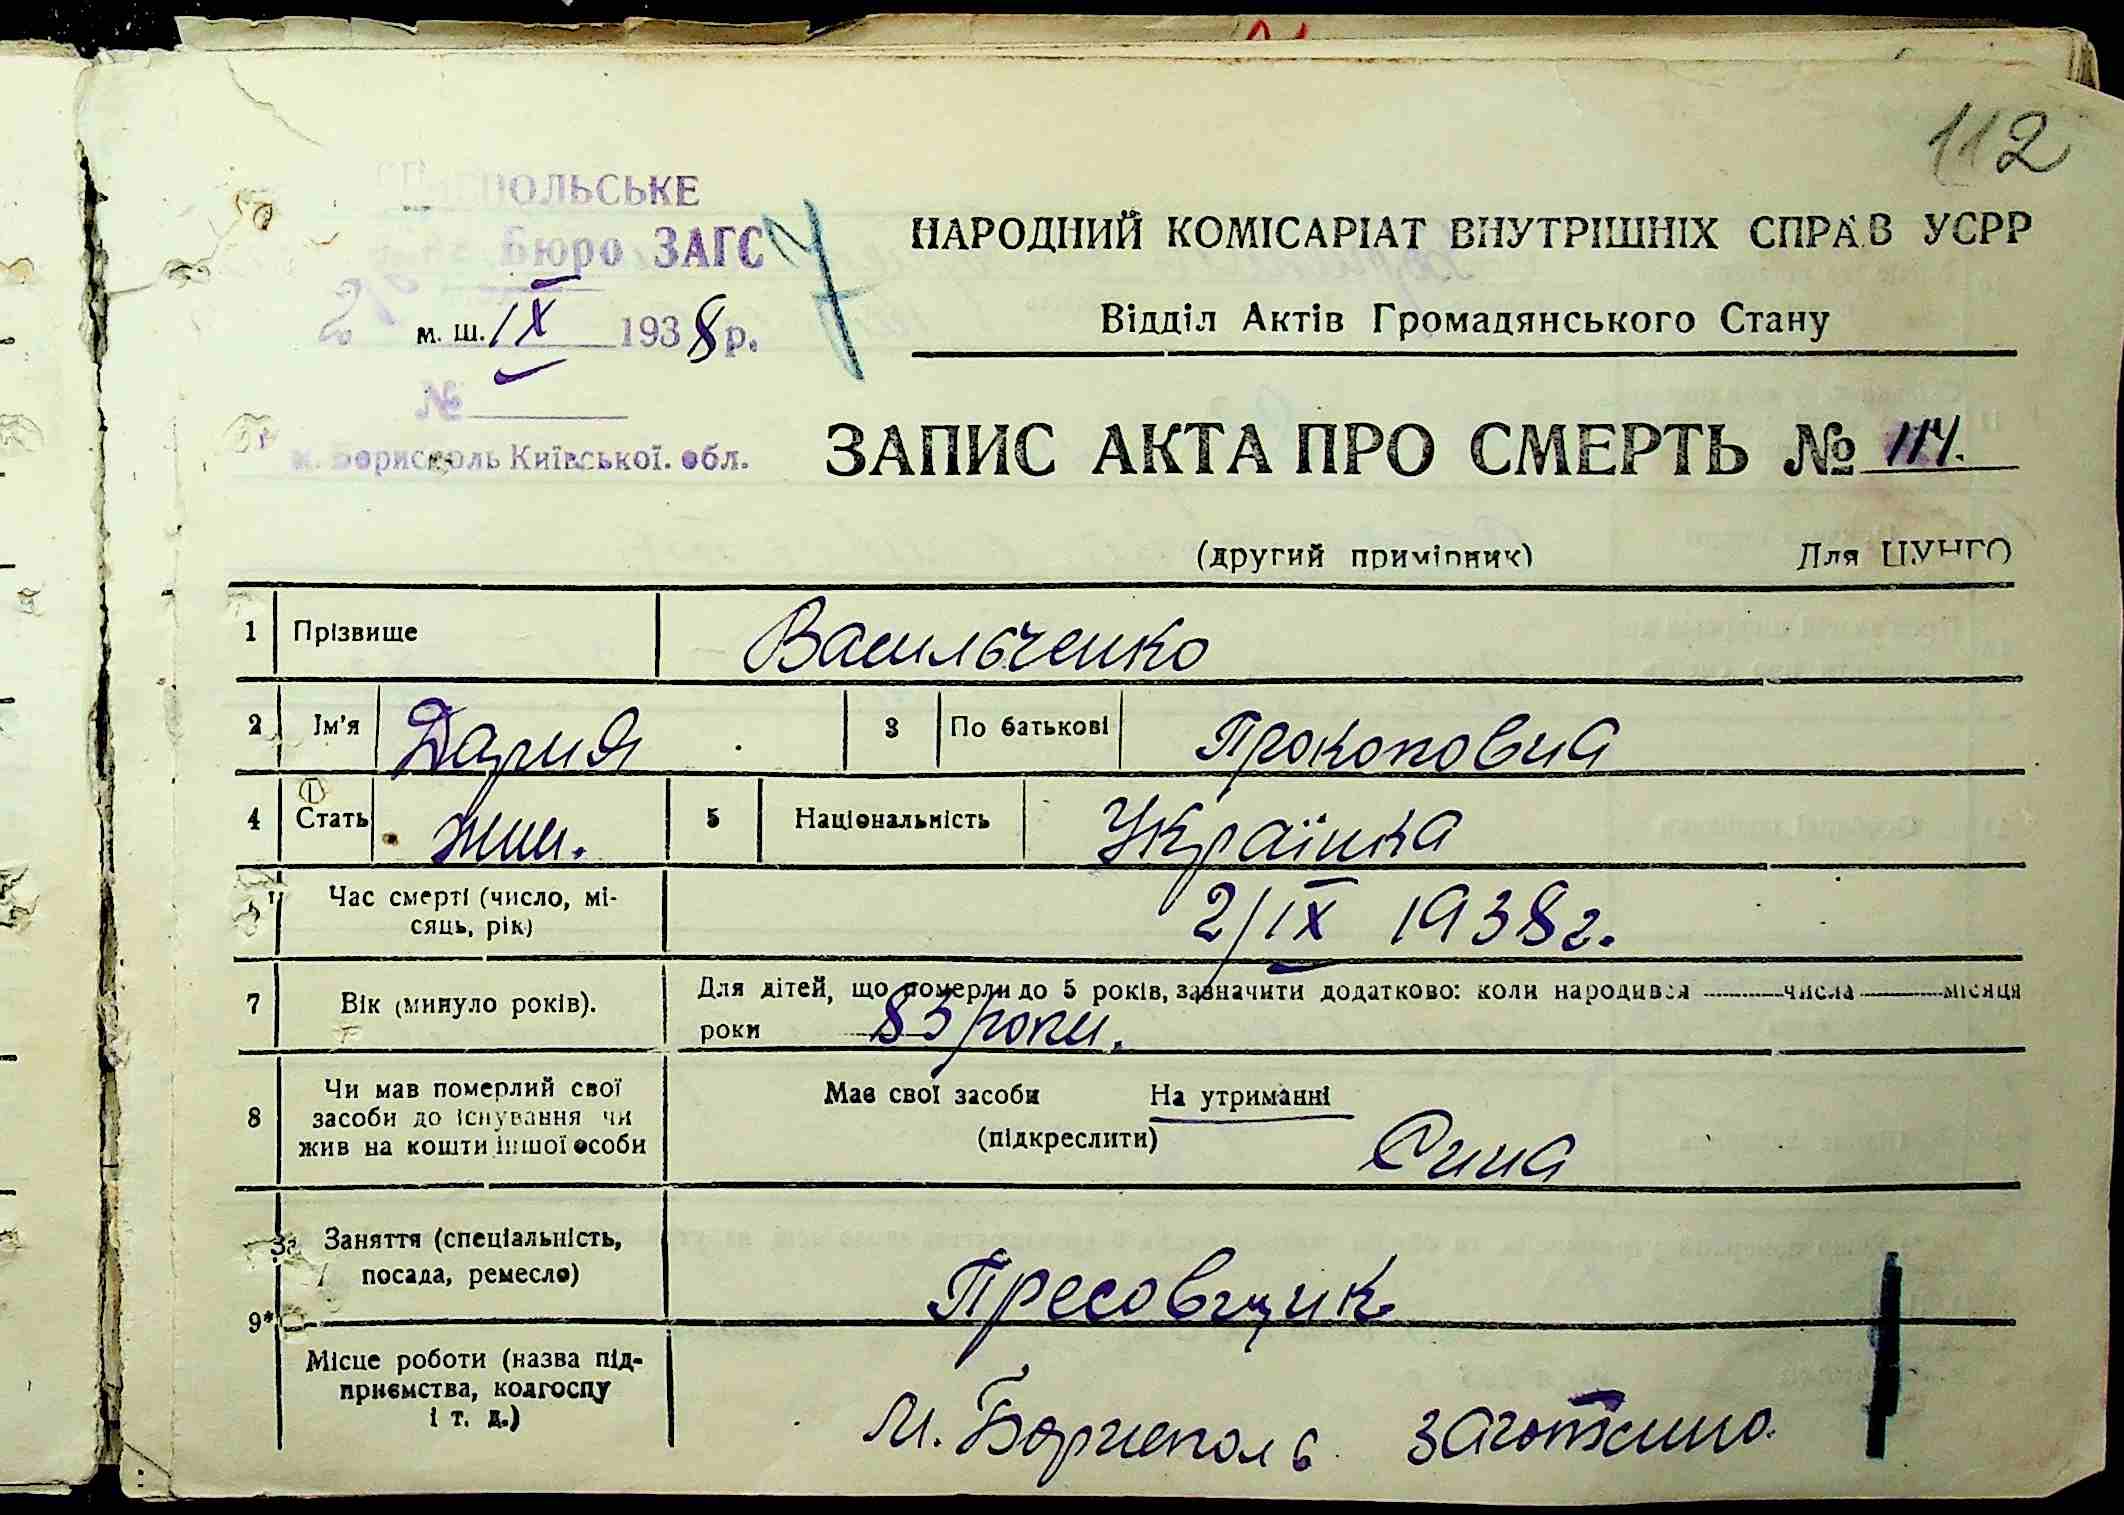 112
БОРИСПОЛЬСЬКЕ
Бюро ЗАГС
7
2 м. ш. IX 1938 р.
№
м. Бориспіль Київської. обл.
НАРОДНИЙ КОМІСАРІАТ ВНУТРІШНІХ СПРАВ УСРР
Відділ Актів Громадянського Стану
ЗАПИС АКТА ПРО СМЕРТЬ № 114.
(другий примірник) Для ЦУНГО
1 Прізвище Васильченко
2 Ім'я Дария 3 По батькові Прокоповна
4 Стать жин. 5 Національність Українка
Час смерті (число, мі-
сяць, рік) 2/IX 1938 г.
7 Вік (минуло років). Для дітей, що померли до 5 років, зазначити додатково: коли народився числа місяця
роки 83 роки.
8 Чи мав померлий свої
засоби до існування чи
жив на кошти іншої особи
Має свої засоби На утриманні
(підкреслити)
Сина
9* За Заняття (спеціальність,
посада, ремесло) Пресовщик
Місце роботи (назва під-
приємства, колгоспу
і т. д.)
м. Бориспольь заготсино.